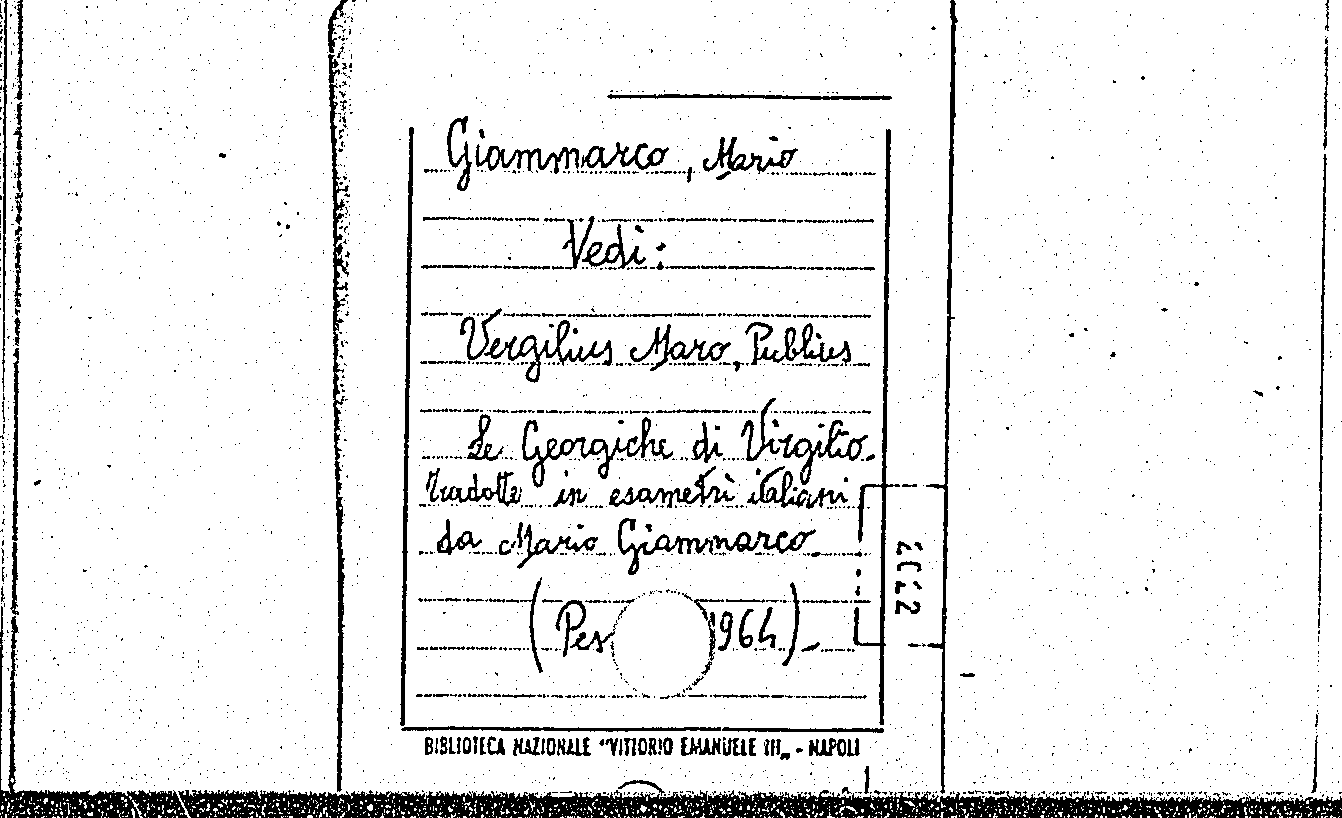 Giammarco, Mario
Vedi:
Vergilius Maro, Publius
Le Georgiche di Virgilio.
Tradotte in esametri italiani
da Mario Giammarco.
(Pes 1964).
BIBLIOTECA NAZIONALE "VITTORIO EMANUELE III„ - NAPOLI